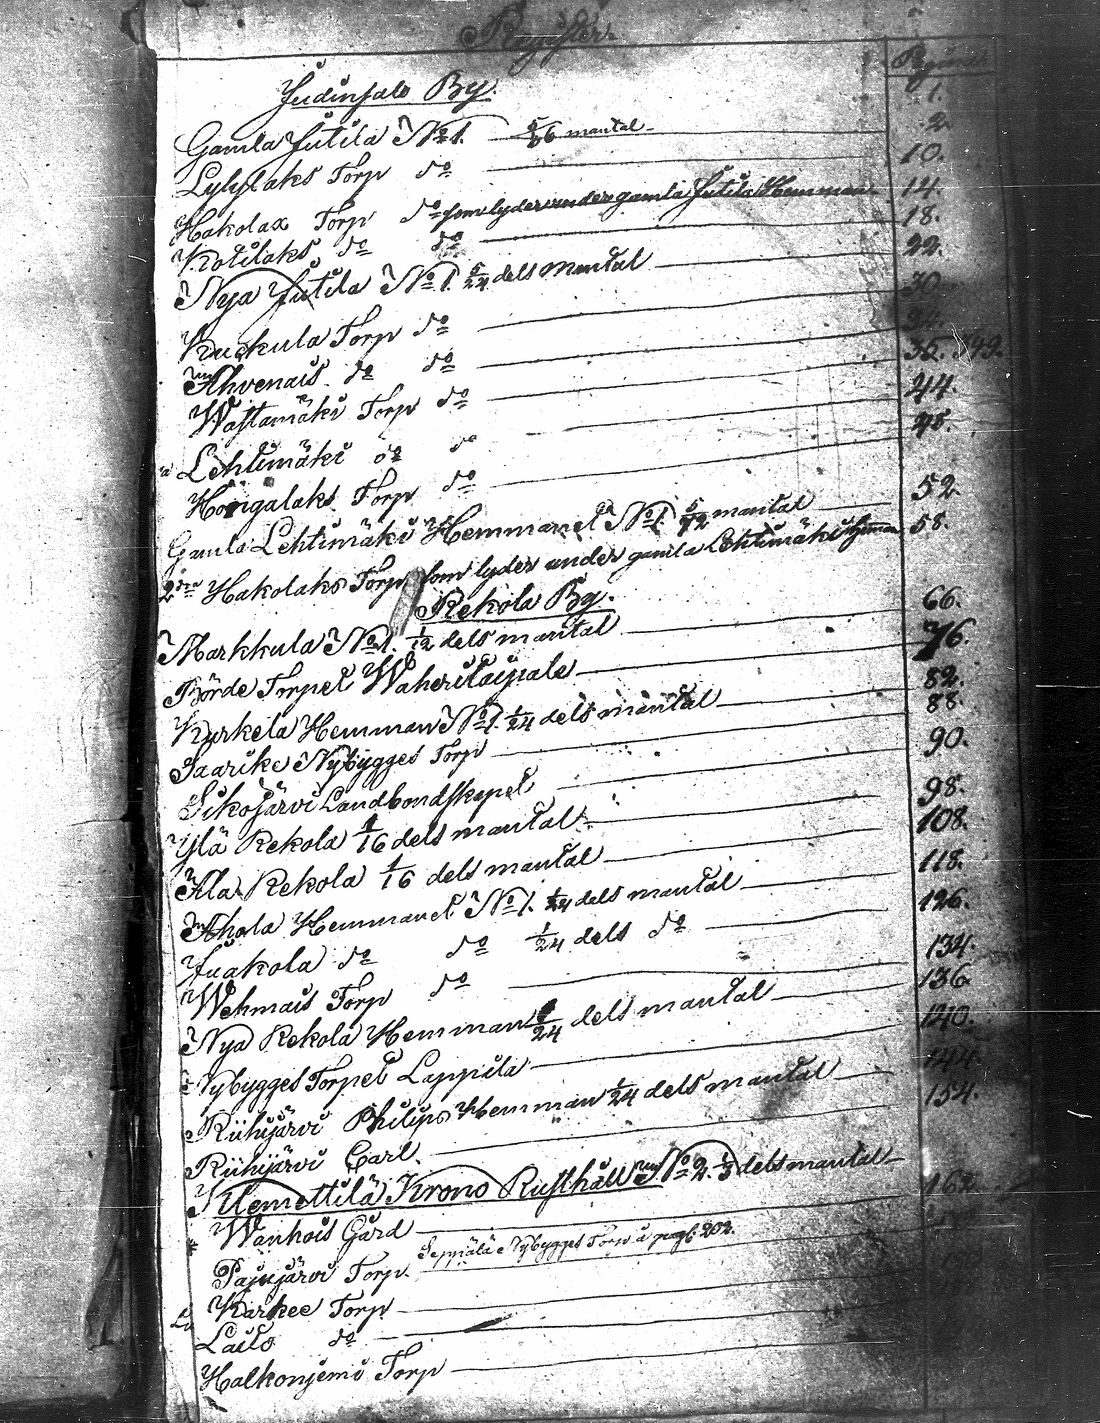 Register.
Pagina
Judinsalo By. 1.
Gamla Jutila No 1. 5/26 mantal 2.
Lylylaks Torp do 10.
Hakolax Torp do som lyder under gamla Jutila Hemman 14.
Kotilaks do do 18.
Nya Jutila No 1. 5/24 dels Mantal 22.
Kuckula Torp do 30.
Ahvenais do do 34.
Wastamäki Torp do 36. 199.
Lehtimäki do do 44.
Hongalaks Torp do 48.
Gamla Lehtimäki Hemmanet No 1. 5/72 mantal 52
2dra Hakolaks Torp som lyder under gamla Lehtimäki Hemman 58.
Rekola By.
Markkula No 1. 1/12 dels mantal 66.
Börde Torpet Waheritaipale 76.
Kyrkela Hemman No 1. 1/24 dels mantal 82.
Saarike Nybygges Torp 88.
Sikojärvi Landbondskapet 90.
Ylä Rekola 1/16 dels mantal 98.
Ala Rekola 1/16 dels mantal 108.
Ahola Hemmanet No 1. 1/24 dels mantal 118.
Juakola do do 1/24 dels do 126.
Wehmais Torp do 134.
Nya Rekola Hemman 1/24 dels mantal 136.
Nybygges Torpet Lappila 140.
Riihijärvi Philips Hemman 1/24 dels mantal 144.
Riihijärvi Carl. 154.
Klemettilä Krono Rusthåll No 2. 1/3 dels mantal
Wanhois Gård 162.
Seppälä Nybygges Torp å pag. 202.
Pajujärvi Torp
Karkee Torp
Lails do
Halkonjemi Torp